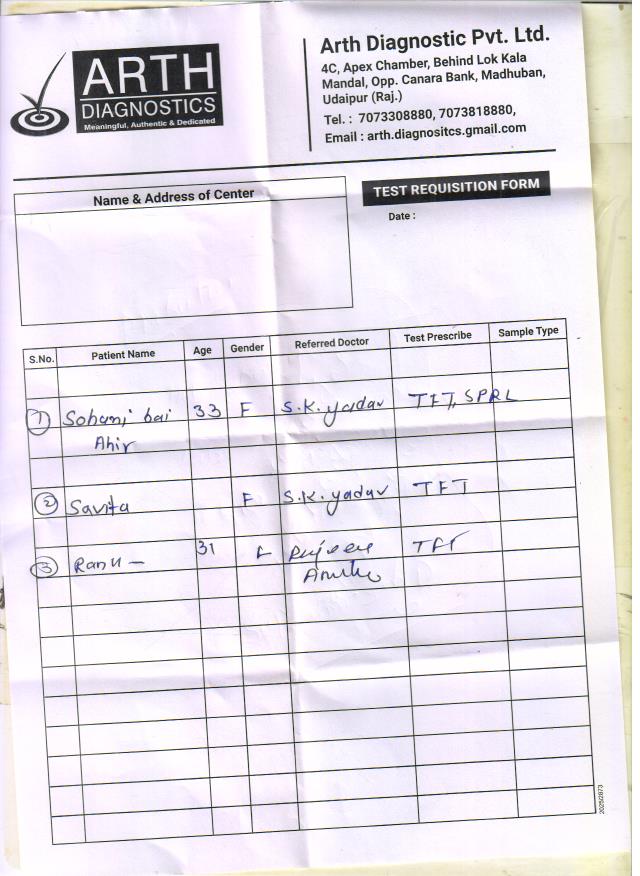 ARTH
DIAGNOSTICS
Meaningful, Authentic & Dedicated
Arth Diagnostic Pvt. Ltd.
4C, Apex Chamber, Behind Lok Kala
Mandal, Opp. Canara Bank, Madhuban,
Udaipur (Raj.)
Tel. : 7073308880, 7073818880,
Email : arth.diagnositcs.gmail.com
Name & Address of Center
TEST REQUISITION FORM
Date :
S.No. Patient Name Age Gender Referred Doctor Test Prescribe Sample Type
1 Sohani bai 33 F S.K. yadav TFT, SPRL
Ahir
2 Savita F S.K. yadav TFT
3 31 F TFT
2025/2873